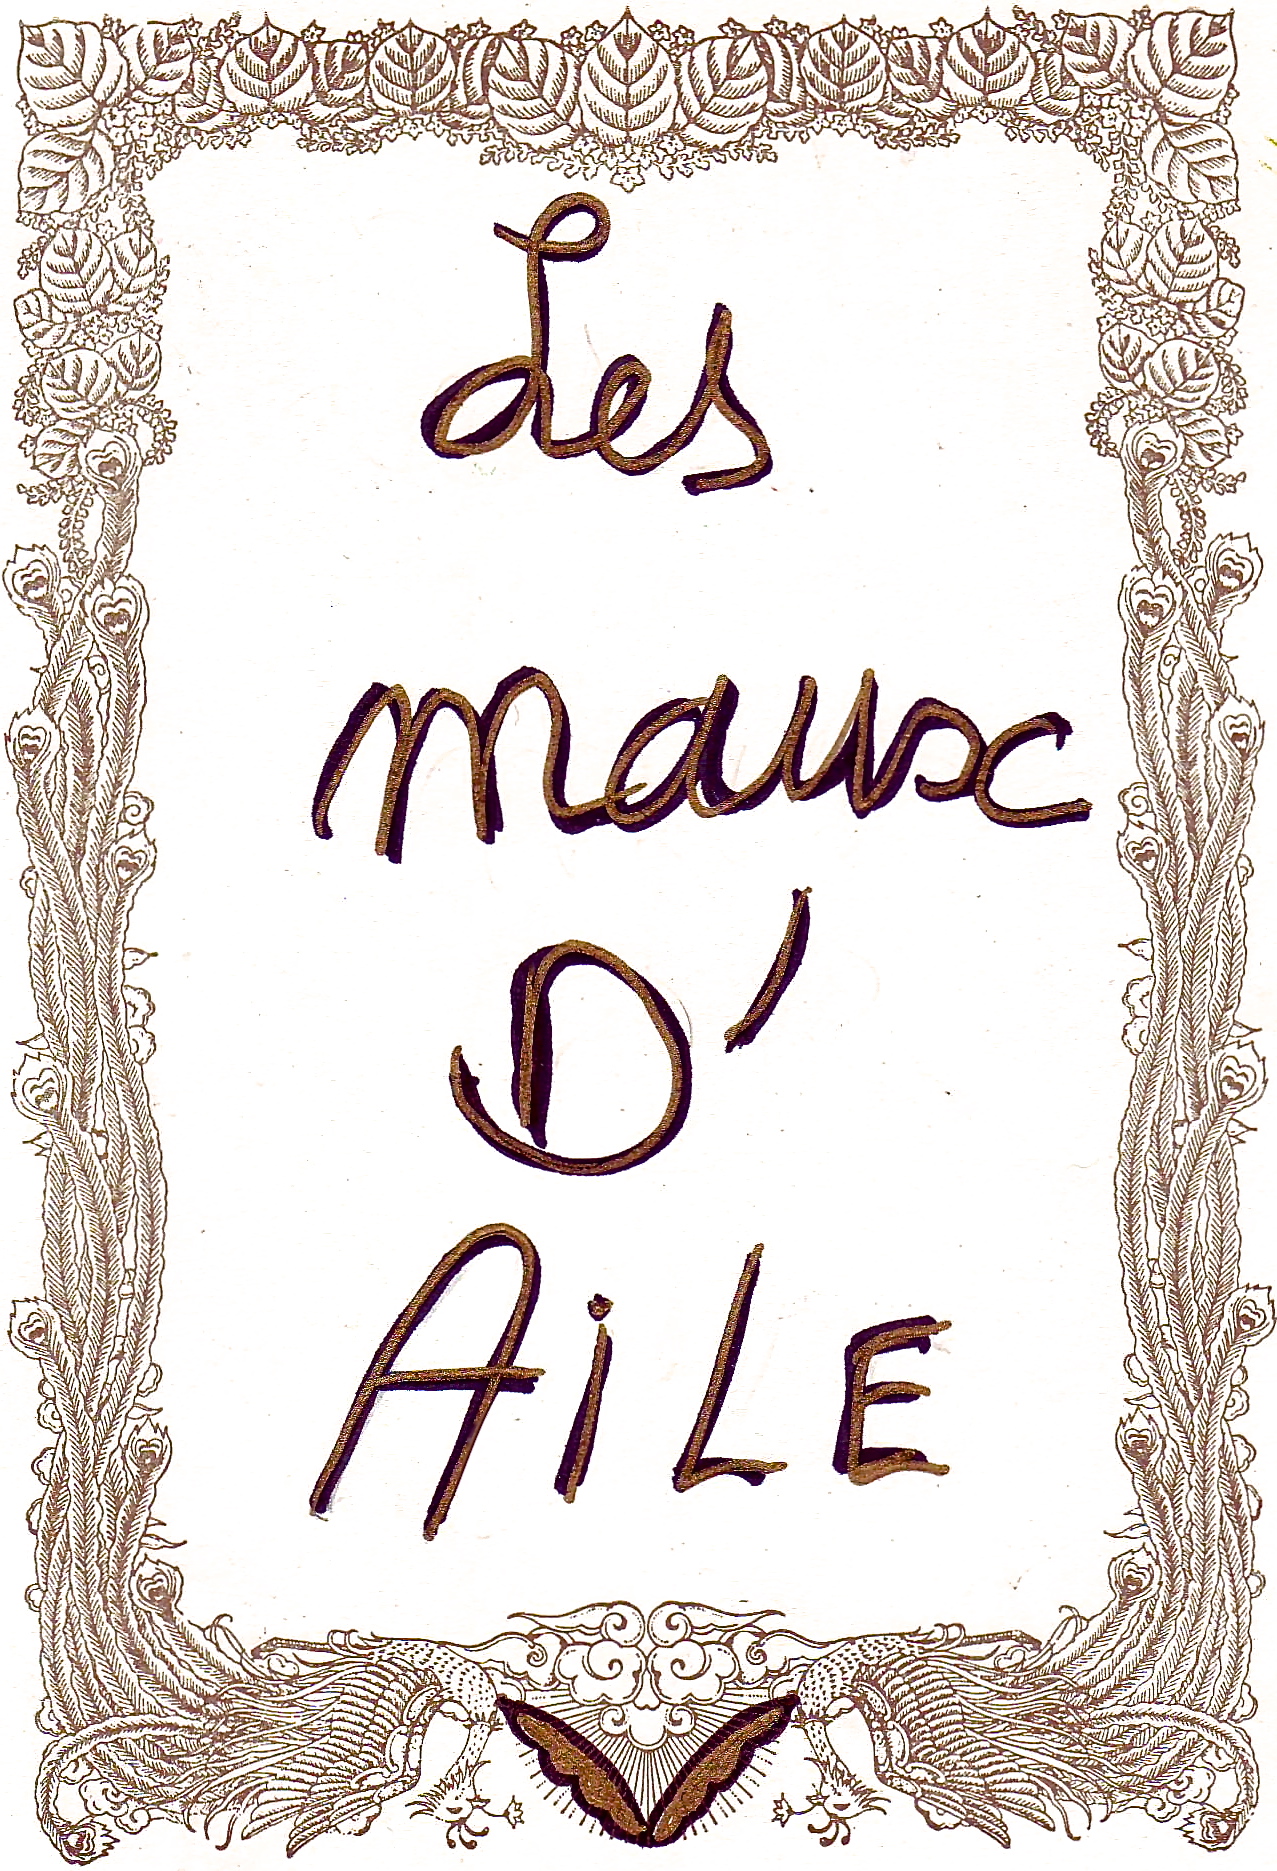 Les
maux
D'
AiLE